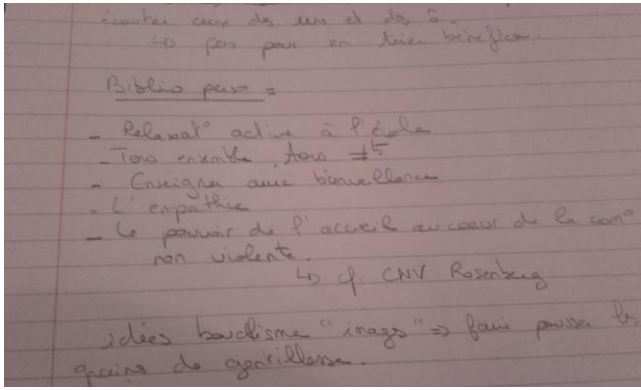 écouter ceux des uns et des ô.
↳ pas pour en tirer bénéfice.
Biblio perso =
- Relaxat° active à l'école
- Tous ensemble, tous ≠ts
- Enseigner avec bienveillance
- L'empathie
- Le pouvoir de l'accueil au coeur de la com°
non violente.
↳ cf. CNV Rosenberg
idées bouddisme "images" => faire pousser les
graines de gentillesse.